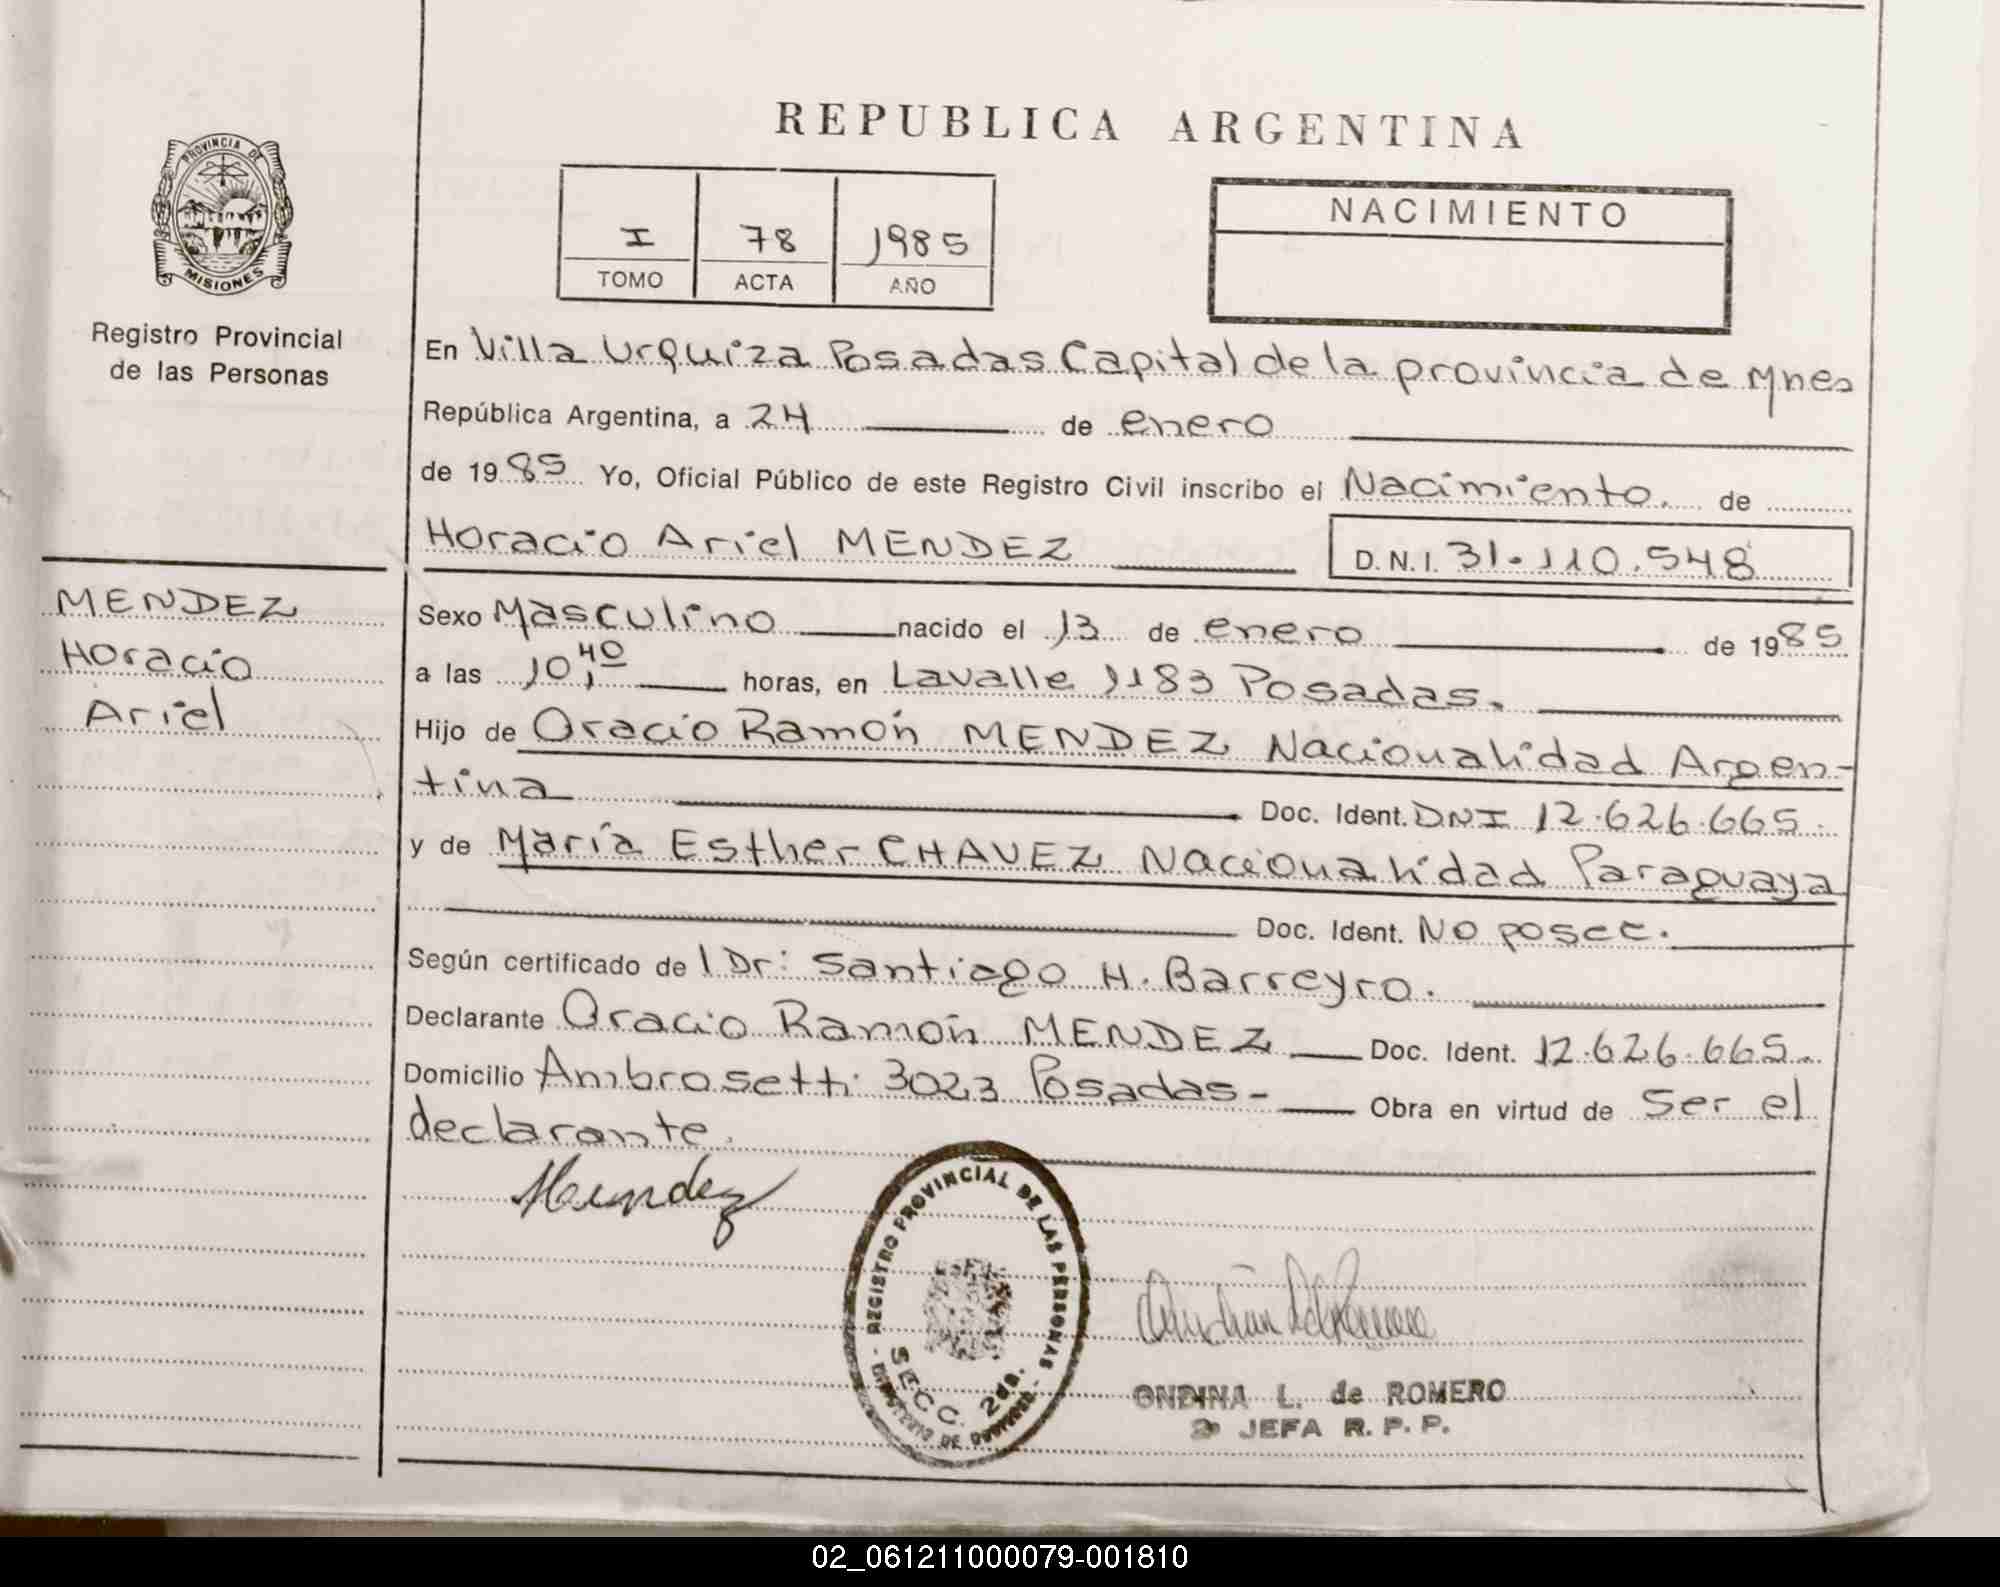 REPUBLICA ARGENTINA
PROVINCIA DE
MISIONES
Registro Provincial
de las Personas
I 78 1985
TOMO ACTA AÑO
NACIMIENTO
En Villa Urquiza Posadas Capital de la provincia de Mnes
República Argentina, a 24 de enero
de 1985 Yo, Oficial Público de este Registro Civil inscribo el Nacimiento. de
Horacio Ariel MENDEZ D.N.I. 31.110.548
MENDEZ
Horacio
Ariel
Sexo Masculino nacido el 13 de enero de 1985
a las 10,40 horas, en Lavalle 1183 Posadas.
Hijo de Oracio Ramón MENDEZ Nacionalidad Argen-
tina Doc. Ident. DNI 12.626.665.
y de María Esther CHAVEZ Nacionalidad Paraguaya
Doc. Ident. No posee.
Según certificado de l Dr: Santiago H. Barreyro.
Declarante Oracio Ramón MENDEZ Doc. Ident. 12.626.665.
Domicilio Ambrosetti 3023 Posadas- Obra en virtud de Ser el
declarante.
Mendez
REGISTRO PROVINCIAL DE LAS PERSONAS
SECC. 2da.
MINISTERIO DE GOBIERNO
ONDINA L. de ROMERO
JEFA R. P. P.
02_061211000079-001810